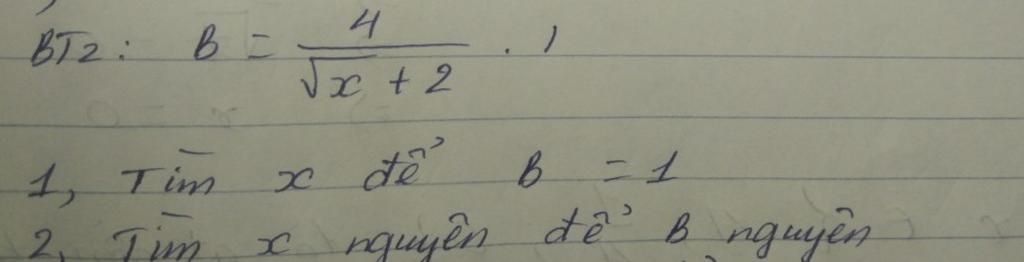 BT2: B = 4 / (√x + 2) .
1, Tìm x để B = 1
2, Tìm x nguyên để B nguyên